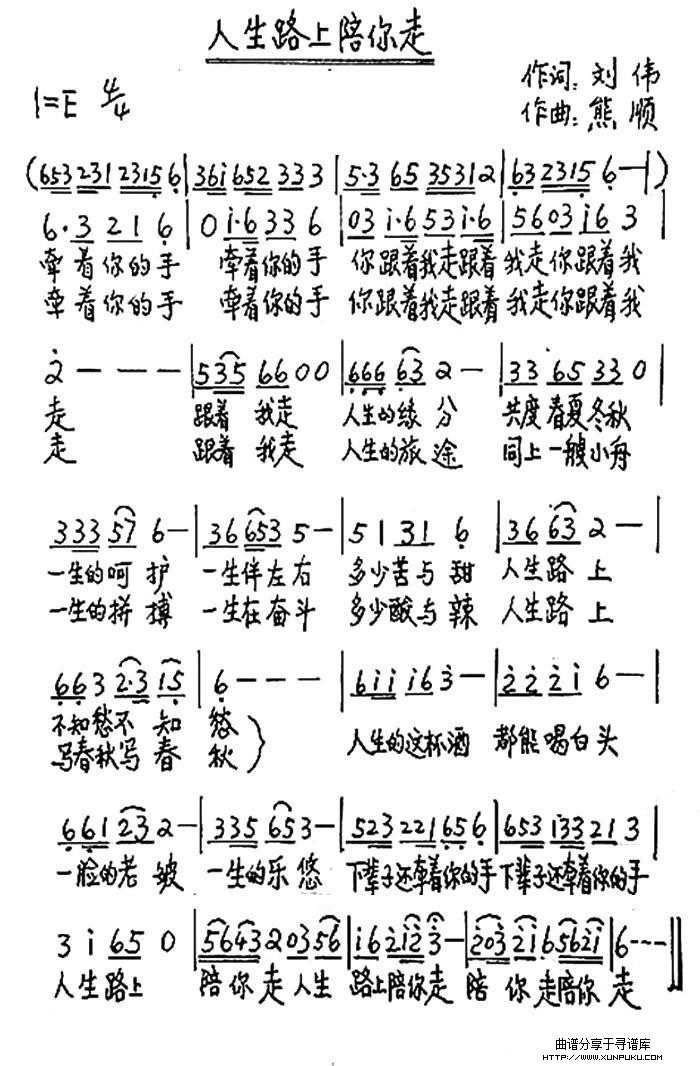 人生路上陪你走
作词:刘伟
1=E 4/4
作曲:熊顺
(653 231 2315 6 | 36i 652 333 | 5·3 65 35312 | 63 2315 6— | )
6·3 21 6 | 0 i·6 33 6 | 03 i·6 53 i·6 | 56 03 i6 3 |
牵着你的手 牵着你的手 你跟着我走跟着 我走你跟着我
牵着你的手 牵着你的手 你跟着我走跟着 我走你跟着我
2 — — — | 535 66 0 0 | 666 63 2 — | 33 65 33 0 |
走 跟着 我走 人生的缘 分 共度春夏冬秋
走 跟着 我走 人生的旅 途 同上一艘小舟
333 57 6— | 36 653 5 — | 5 1 31 6 | 36 63 2 — |
一生的呵 护 一生伴左右 多少苦与 甜 人生路 上
一生的拼 搏 一生在奋斗 多少酸与 辣 人生路 上
663 2·3 15 | 6 — — — | 6iii i63— | 222i 6— |
不知愁不 知 愁
写春秋写 春 秋 } 人生的这杯酒 都能喝白头
661 23 2— | 335 653— | 523 221656 | 653 133213 |
一脸的老 皱 一生的乐 悠 下辈子还牵着你的手 下辈子还牵着你的手
3 i 65 0 | 5643 2 0356 | i6 212 3— | 203 21 65621 | 6--- ||
人生路上 陪你走人生 路上陪你走 陪 你走陪你 走
曲谱分享于寻谱库
HTTP://WWW.XUNPUKU.COM